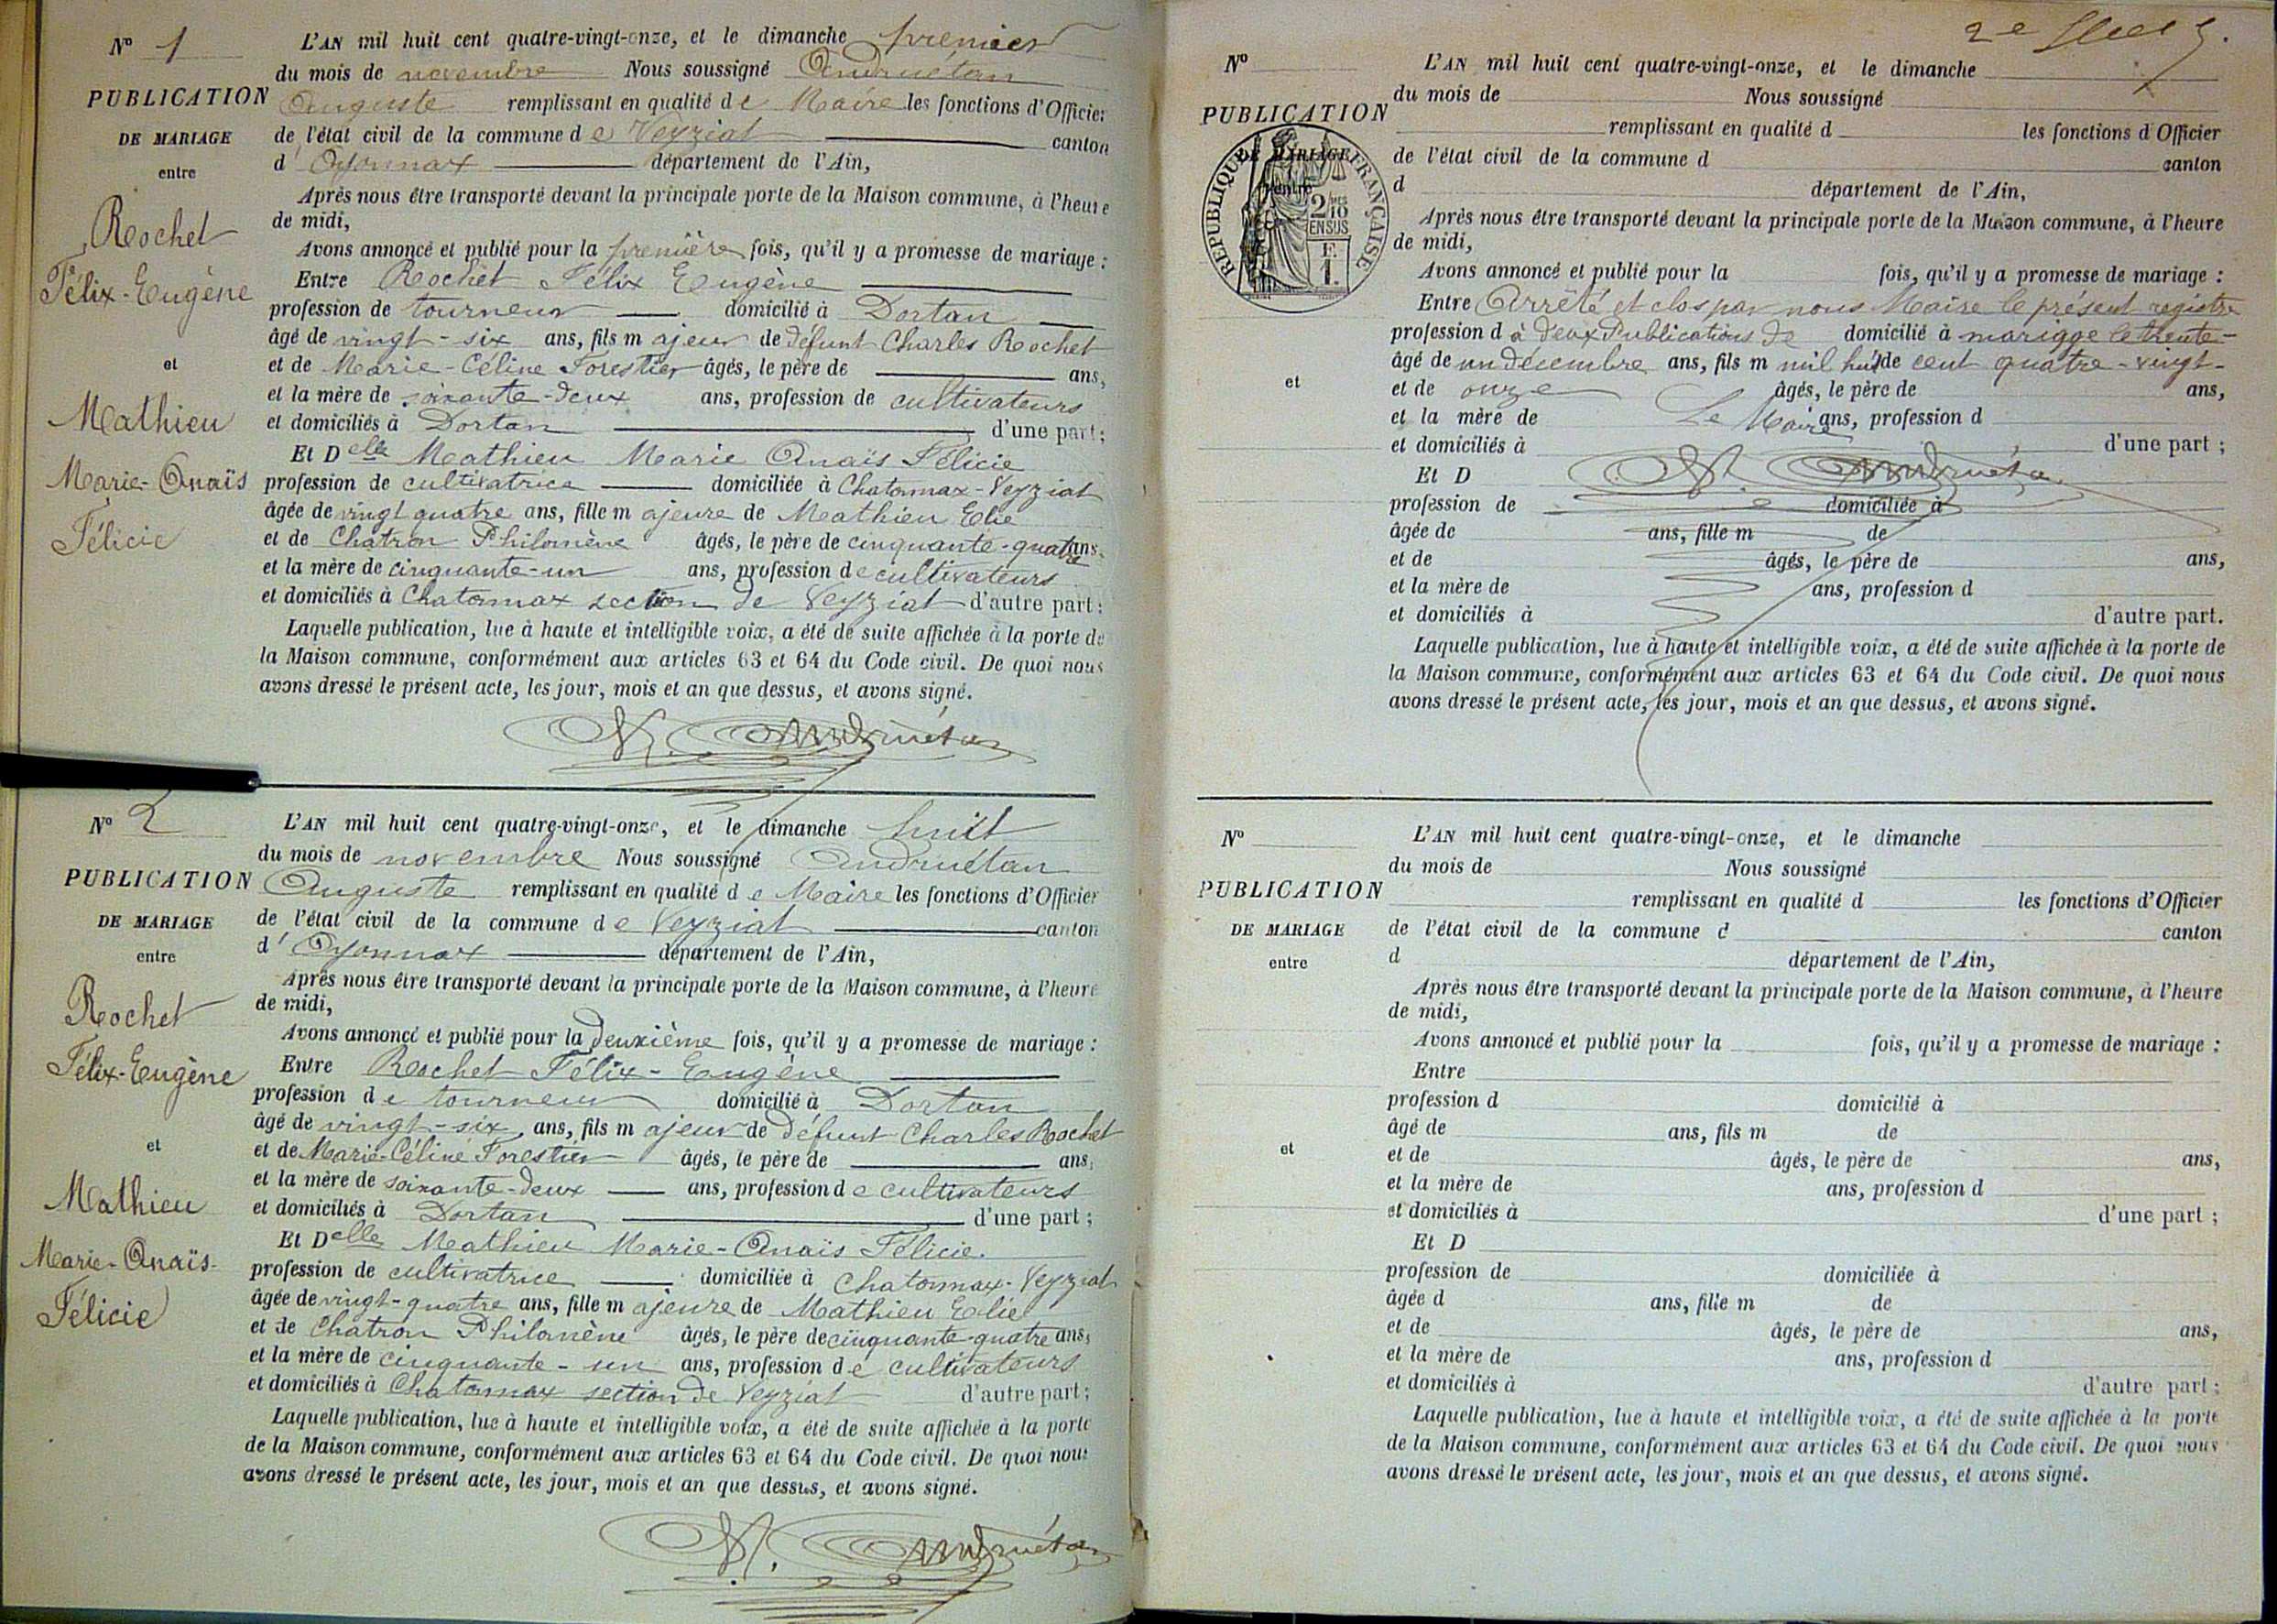 N° 1
PUBLICATION
DE MARIAGE
entre
Rochet
Félix-Eugène
et
Mathieu
Marie-Anaïs
Félicie
L'AN mil huit cent quatre-vingt-onze, et le dimanche premier
du mois de novembre Nous soussigné Andruétan
Auguste remplissant en qualité de Maire les fonctions d'Officier
de l'état civil de la commune de Veyziat canton
d'Oyonnax département de l'Ain,
Après nous être transporté devant la principale porte de la Maison commune, à l'heure
de midi,
Avons annoncé et publié pour la première fois, qu'il y a promesse de mariage :
Entre Rochet Félix Eugène
profession de tourneur domicilié à Dortan
âgé de vingt-six ans, fils majeur de défunt Charles Rochet
et de Marie-Céline Forestier âgés, le père de ans,
et la mère de soixante-deux ans, profession de cultivateurs
et domiciliés à Dortan d'une part;
Et Delle Mathieu Marie Anaïs Félicie
profession de cultivatrice domiciliée à Chatonnax-Veyziat
âgée de vingt quatre ans, fille majeure de Mathieu Elie
et de Chatron Philomène âgés, le père de cinquante-quatre ans,
et la mère de cinquante-un ans, profession de cultivateurs
et domiciliés à Chatonnax section de Veyziat d'autre part:
Laquelle publication, lue à haute et intelligible voix, a été de suite affichée à la porte de
la Maison commune, conformément aux articles 63 et 64 du Code civil. De quoi nous
avons dressé le présent acte, les jour, mois et an que dessus, et avons signé.
A. Andruétan
N° 2
PUBLICATION
DE MARIAGE
entre
Rochet
Félix-Eugène
et
Mathieu
Marie-Anaïs-
Félicie
L'AN mil huit cent quatre-vingt-onze, et le dimanche huit
du mois de novembre Nous soussigné Andruétan
Auguste remplissant en qualité de Maire les fonctions d'Officier
de l'état civil de la commune de Veyziat canton
d'Oyonnax département de l'Ain,
Après nous être transporté devant la principale porte de la Maison commune, à l'heure
de midi,
Avons annoncé et publié pour la deuxième fois, qu'il y a promesse de mariage :
Entre Rochet Félix-Eugène
profession de tourneur domicilié à Dortan
âgé de vingt-six ans, fils majeur de défunt Charles Rochet
et de Marie-Céline Forestier âgés, le père de ans,
et la mère de soixante-deux ans, profession de cultivateurs
et domiciliés à Dortan d'une part;
Et Delle Mathieu Marie-Anaïs Félicie.
profession de cultivatrice domiciliée à Chatonnax-Veyziat
âgée de vingt-quatre ans, fille majeure de Mathieu Elie
et de Chatron Philomène âgés, le père de cinquante-quatre ans,
et la mère de cinquante-un ans, profession de cultivateurs
et domiciliés à Chatonnax section de Veyziat d'autre part;
Laquelle publication, lue à haute et intelligible voix, a été de suite affichée à la porte
de la Maison commune, conformément aux articles 63 et 64 du Code civil. De quoi nous
avons dressé le présent acte, les jour, mois et an que dessus, et avons signé.
A. Andruétan
2e
N°
PUBLICATION
DE MARIAGE
entre
RÉPUBLIQUE FRANÇAISE
2/10
EN SUS
F.
1.
et
L'AN mil huit cent quatre-vingt-onze, et le dimanche
du mois de Nous soussigné
remplissant en qualité d les fonctions d'Officier
de l'état civil de la commune d canton
d département de l'Ain,
Après nous être transporté devant la principale porte de la Maison commune, à l'heure
de midi,
Avons annoncé et publié pour la fois, qu'il y a promesse de mariage :
Entre Arrêté et clos par nous Maire le présent registre
profession d à deux Publications de domicilié à mariage le trente-
âgé de un décembre ans, fils m mil huit de cent quatre-vingt-
et de onze âgés, le père de ans,
et la mère de Le Maire ans, profession d
et domiciliés à d'une part ;
Et D A. Andruétan
profession de domiciliée à
âgée de ans, fille m de
et de âgés, le père de ans,
et la mère de ans, profession d
et domiciliés à d'autre part.
Laquelle publication, lue à haute et intelligible voix, a été de suite affichée à la porte de
la Maison commune, conformément aux articles 63 et 64 du Code civil. De quoi nous
avons dressé le présent acte, les jour, mois et an que dessus, et avons signé.
N°
PUBLICATION
DE MARIAGE
entre
et
L'AN mil huit cent quatre-vingt-onze, et le dimanche
du mois de Nous soussigné
remplissant en qualité d les fonctions d'Officier
de l'état civil de la commune d canton
d département de l'Ain,
Après nous être transporté devant la principale porte de la Maison commune, à l'heure
de midi,
Avons annoncé et publié pour la fois, qu'il y a promesse de mariage :
Entre
profession d domicilié à
âgé de ans, fils m de
et de âgés, le père de ans,
et la mère de ans, profession d
et domiciliés à d'une part ;
Et D
profession de domiciliée à
âgée d ans, fille m de
et de âgés, le père de ans,
et la mère de ans, profession d
et domiciliés à d'autre part ;
Laquelle publication, lue à haute et intelligible voix, a été de suite affichée à la porte
de la Maison commune, conformément aux articles 63 et 64 du Code civil. De quoi nous
avons dressé le présent acte, les jour, mois et an que dessus, et avons signé.